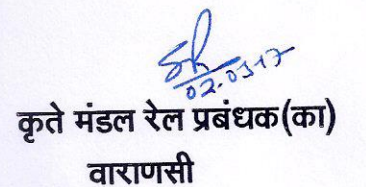 02.03.17
कृते मंडल रेल प्रबंधक(का)
वाराणसी